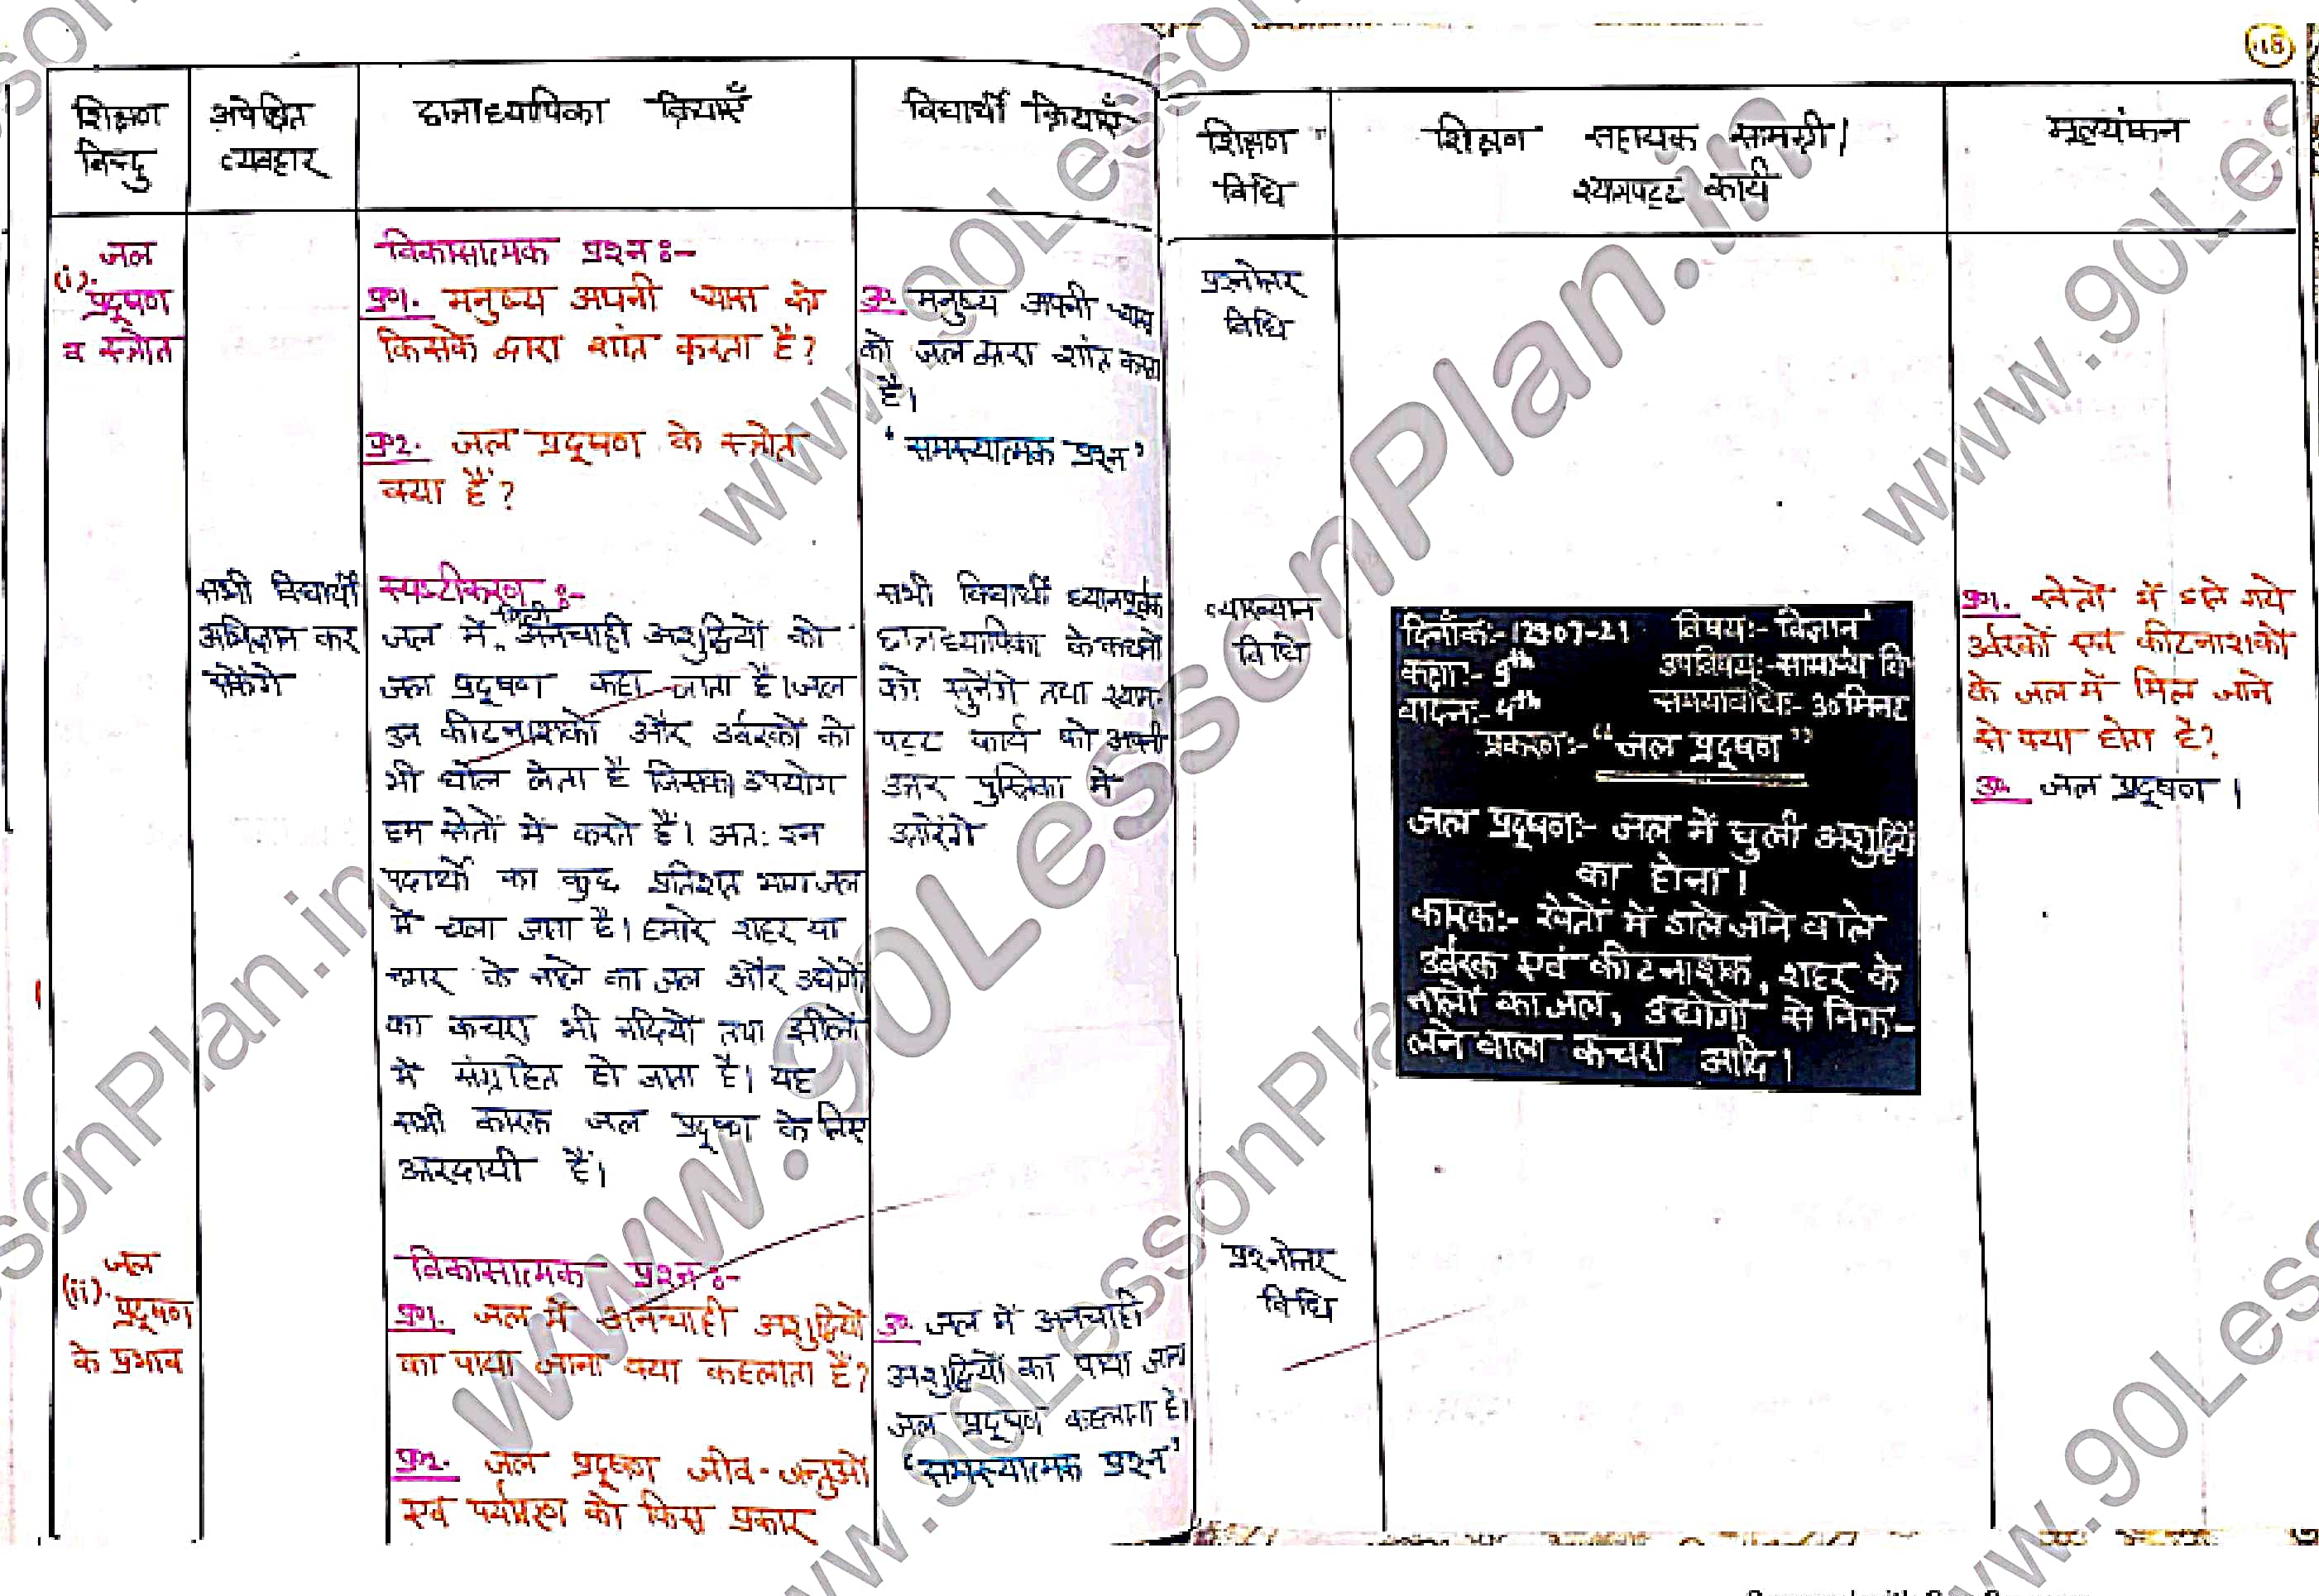 शिक्षण बिन्दु
अपेक्षित व्यवहार
छात्राध्यापिका क्रियाएँ
विद्यार्थी क्रियाएँ
शिक्षण विधि
शिक्षण सहायक सामग्री/
श्यामपट्ट कार्य
मूल्यांकन
(i). जल
प्रदूषण
व स्त्रोत
विकासात्मक प्रश्न :-
प्र01. मनुष्य अपनी प्यास को
किसके द्वारा शांत करता है?
उ0 मनुष्य अपनी प्यास
को जल द्वारा शांत करता
है।
प्रश्नोत्तर
विधि
प्र02. जल प्रदूषण के स्त्रोत
क्या हैं?
'समस्यात्मक प्रश्न'
सभी विद्यार्थी
अभिज्ञान कर
सकेंगे
स्पष्टीकरण :-
जल में अनचाही अशुद्धियों को
जल प्रदूषण कहा जाता है। जल
उन कीटनाशकों और उर्वरकों को
भी घोल लेता है जिसका उपयोग
हम खेतों में करते हैं। अतः इन
पदार्थों का कुछ प्रतिशत भाग जल
में चला जाता है। हमारे शहर या
नगर के नाले का जल और उद्योगों
का कचरा भी नदियों तथा झीलों
में संग्रहित हो जाता है। यह
सभी कारक जल प्रदूषण के लिए
उत्तरदायी हैं।
सभी विद्यार्थी ध्यानपूर्वक
छात्राध्यापिका के कथनों
को सुनेंगे तथा श्याम-
पट्ट कार्य को अपनी
उत्तर पुस्तिका में
उतारेंगे
व्याख्यान
विधि
दिनाँक:- 07-21 विषय:- विज्ञान
कक्षा:- 9th उपविषय:- सामान्य वि
कालांश:- 4th समयावधि:- 30 मिनट
प्रकरण:- "जल प्रदूषण"
जल प्रदूषण:- जल में घुली अशुद्धियों
का होना।
कारक:- खेतों में डाले जाने वाले
उर्वरक एवं कीटनाशक, शहर के
नालों का जल, उद्योगों से निक-
लने वाला कचरा आदि।
प्र01. खेतों में डाले गये
उर्वरकों एवं कीटनाशकों
के जल में मिल जाने
से क्या होता है?
उ0 जल प्रदूषण।
(ii). जल
प्रदूषण
के प्रभाव
विकासात्मक प्रश्न :-
प्र01. जल में अनचाही अशुद्धियों
का पाया जाना क्या कहलाता है?
उ0 जल में अनचाही
अशुद्धियों का पाया जाना
जल प्रदूषण कहलाता है।
प्रश्नोत्तर
विधि
प्र02. जल प्रदूषण जीव-जन्तुओं
एवं पर्यावरण को किस प्रकार
'समस्यात्मक प्रश्न'
www.90LessonPlan.in